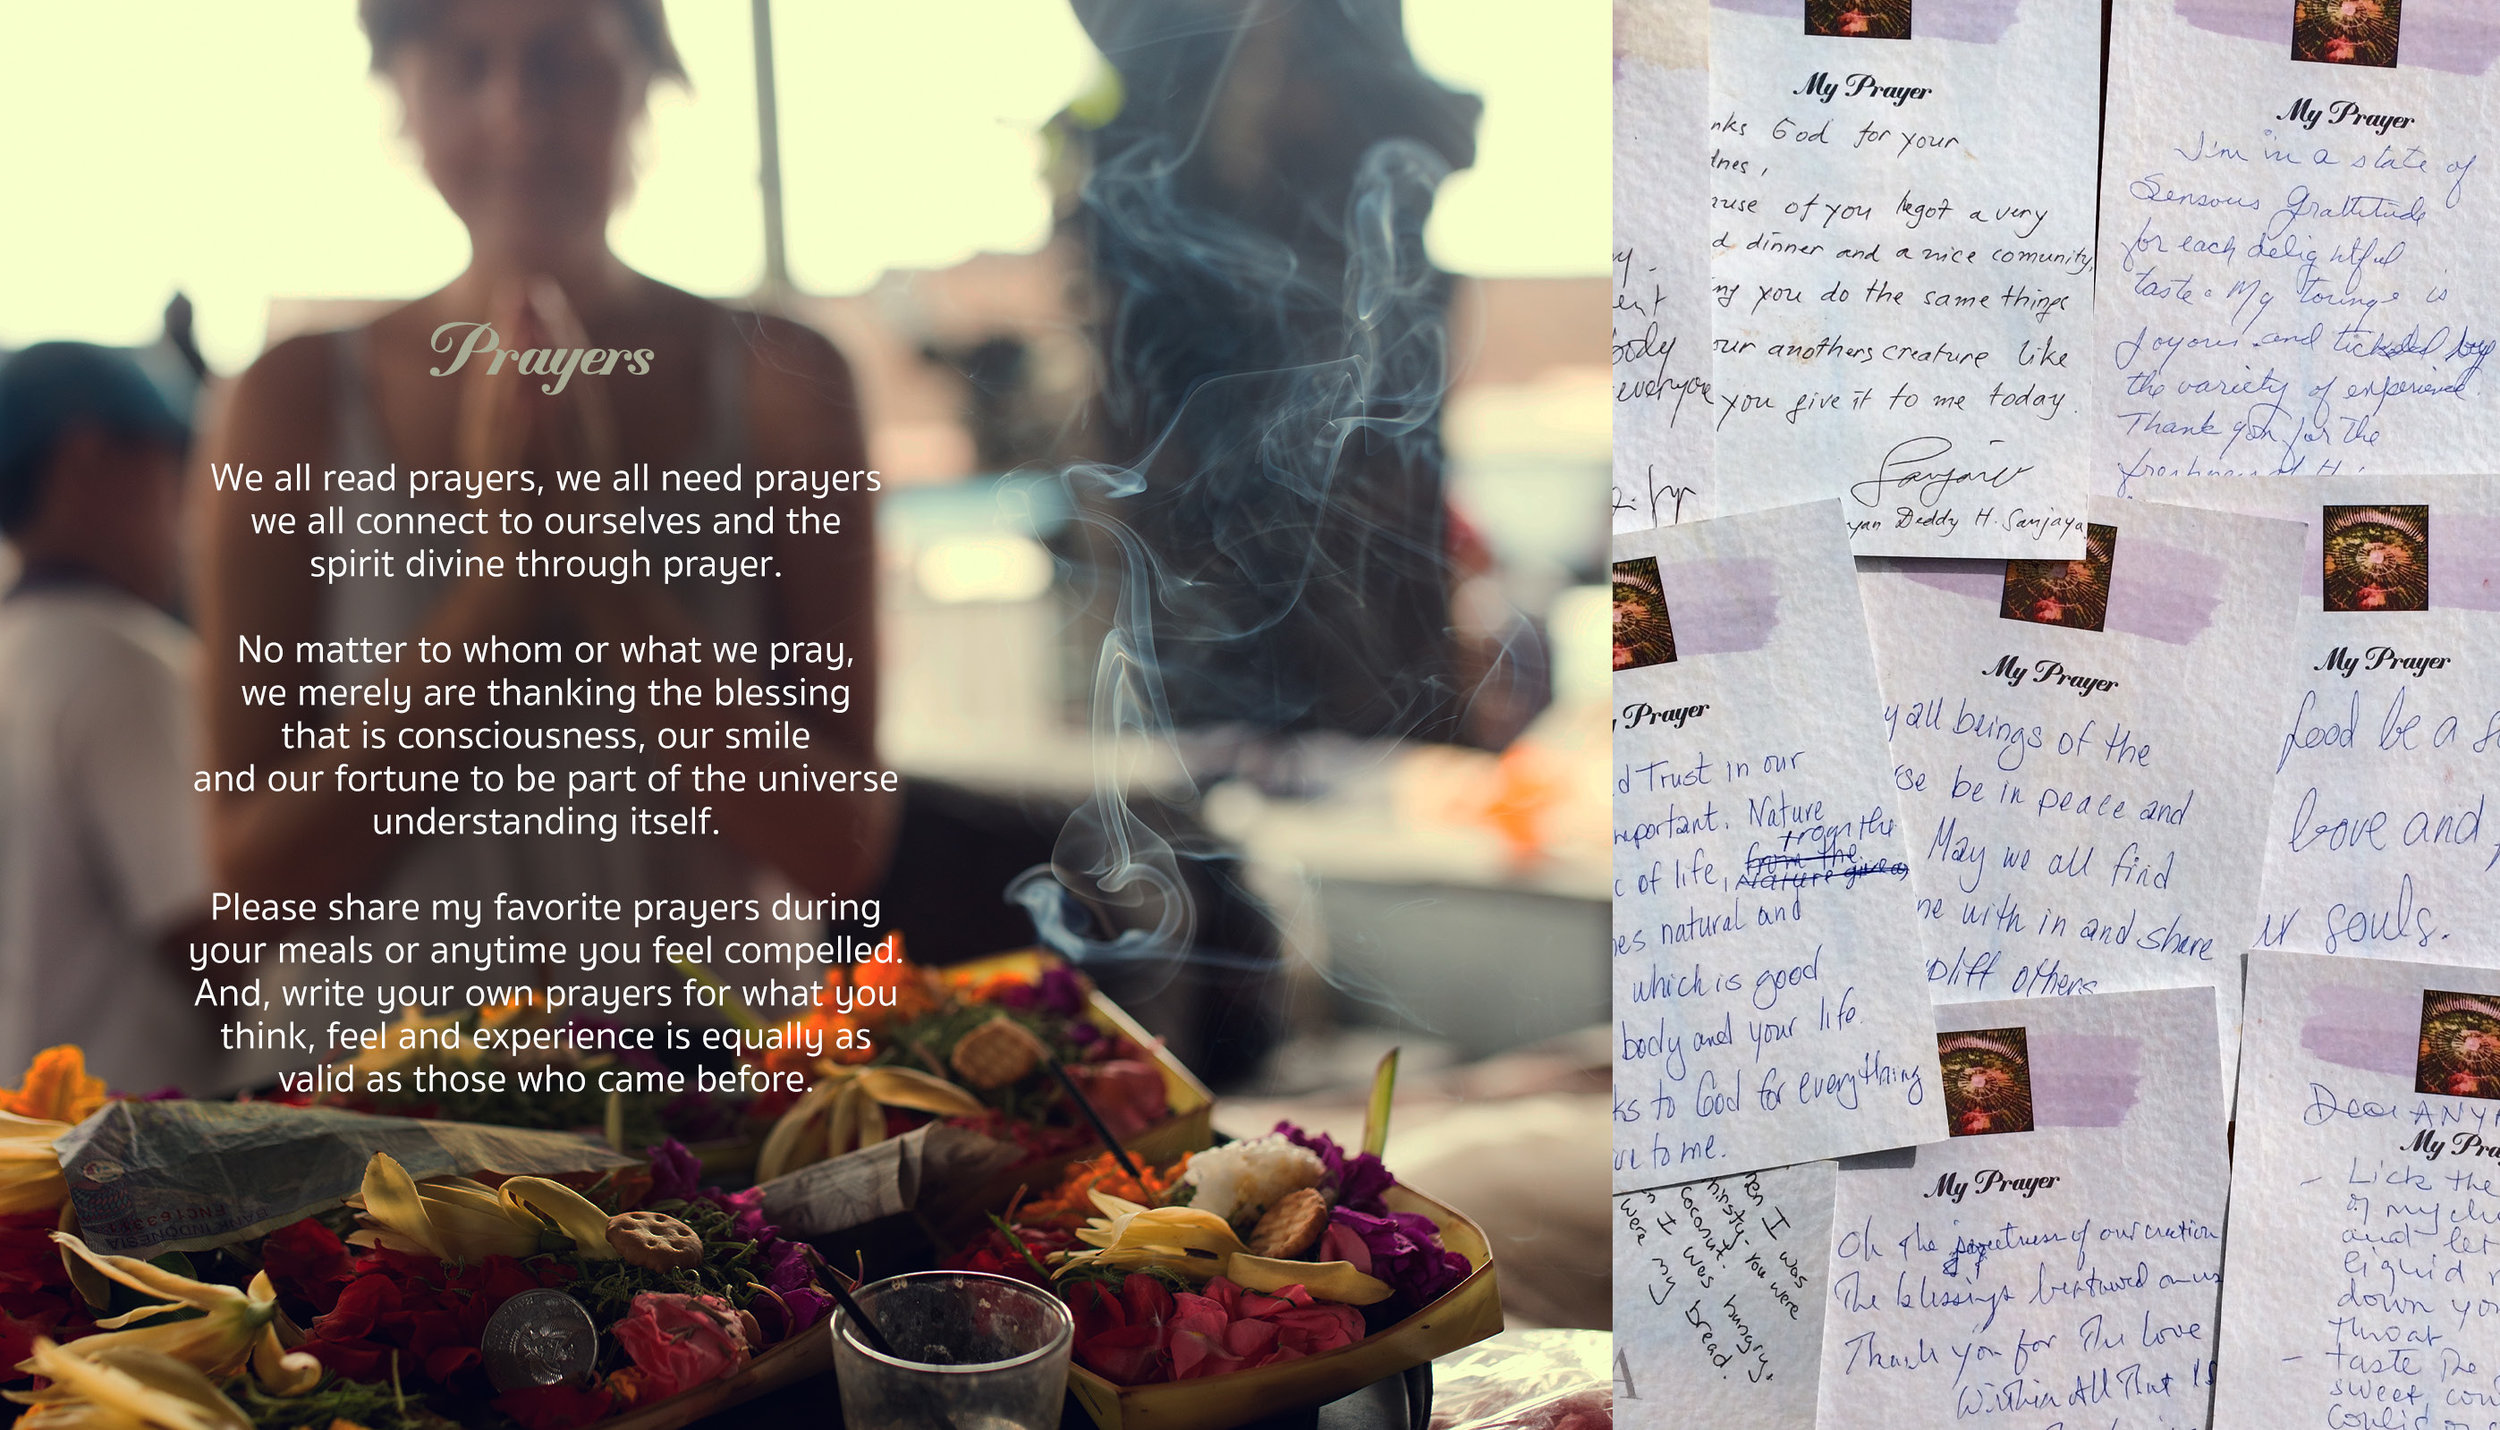 Prayers
We all read prayers, we all need prayers
we all connect to ourselves and the
spirit divine through prayer.
No matter to whom or what we pray,
we merely are thanking the blessing
that is consciousness, our smile
and our fortune to be part of the universe
understanding itself.
Please share my favorite prayers during
your meals or anytime you feel compelled.
And, write your own prayers for what you
think, feel and experience is equally as
valid as those who came before.
BANK INDONESIA
body
everyone
My Prayer
God for your
of you I got a very
dinner and a nice comunity,
you do the same things
anothers creature like
you give it to me today.
Deddy H. Sanjaya
My Prayer
I'm in a state of
Sensous Grattitude
for each delightful
taste. My tounge is
Joyous and tickded by
the variety of experience.
Thank you for the
Prayer
Trust in our
Nature
from the
of life, from the
Nature gives
natural and
which is good
body and your life.
to God for everything
to me.
My Prayer
all beings of the
be in peace and
May we all find
with in and share
others
My Prayer
food be a
Love and
souls.
I was
thirsty - You were
coconut.
I was hungry.
were my bread.
My Prayer
Oh the of our creation
The blessings bestowed on us
Thank you for The Love
Within All That Is
Dear
My
- Lick the
of my
and let
liquid
down you
throat
- taste the
sweet,